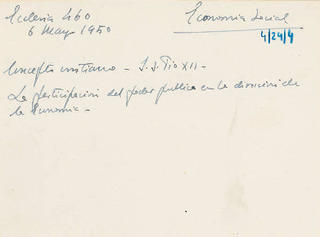 Ecclesia 460
6 Mayo 1950
Economia Social
4/24/4
Concepto cristiano - S.S. Pio XII -
La participación del poder publico en la dirección de
la Economia -